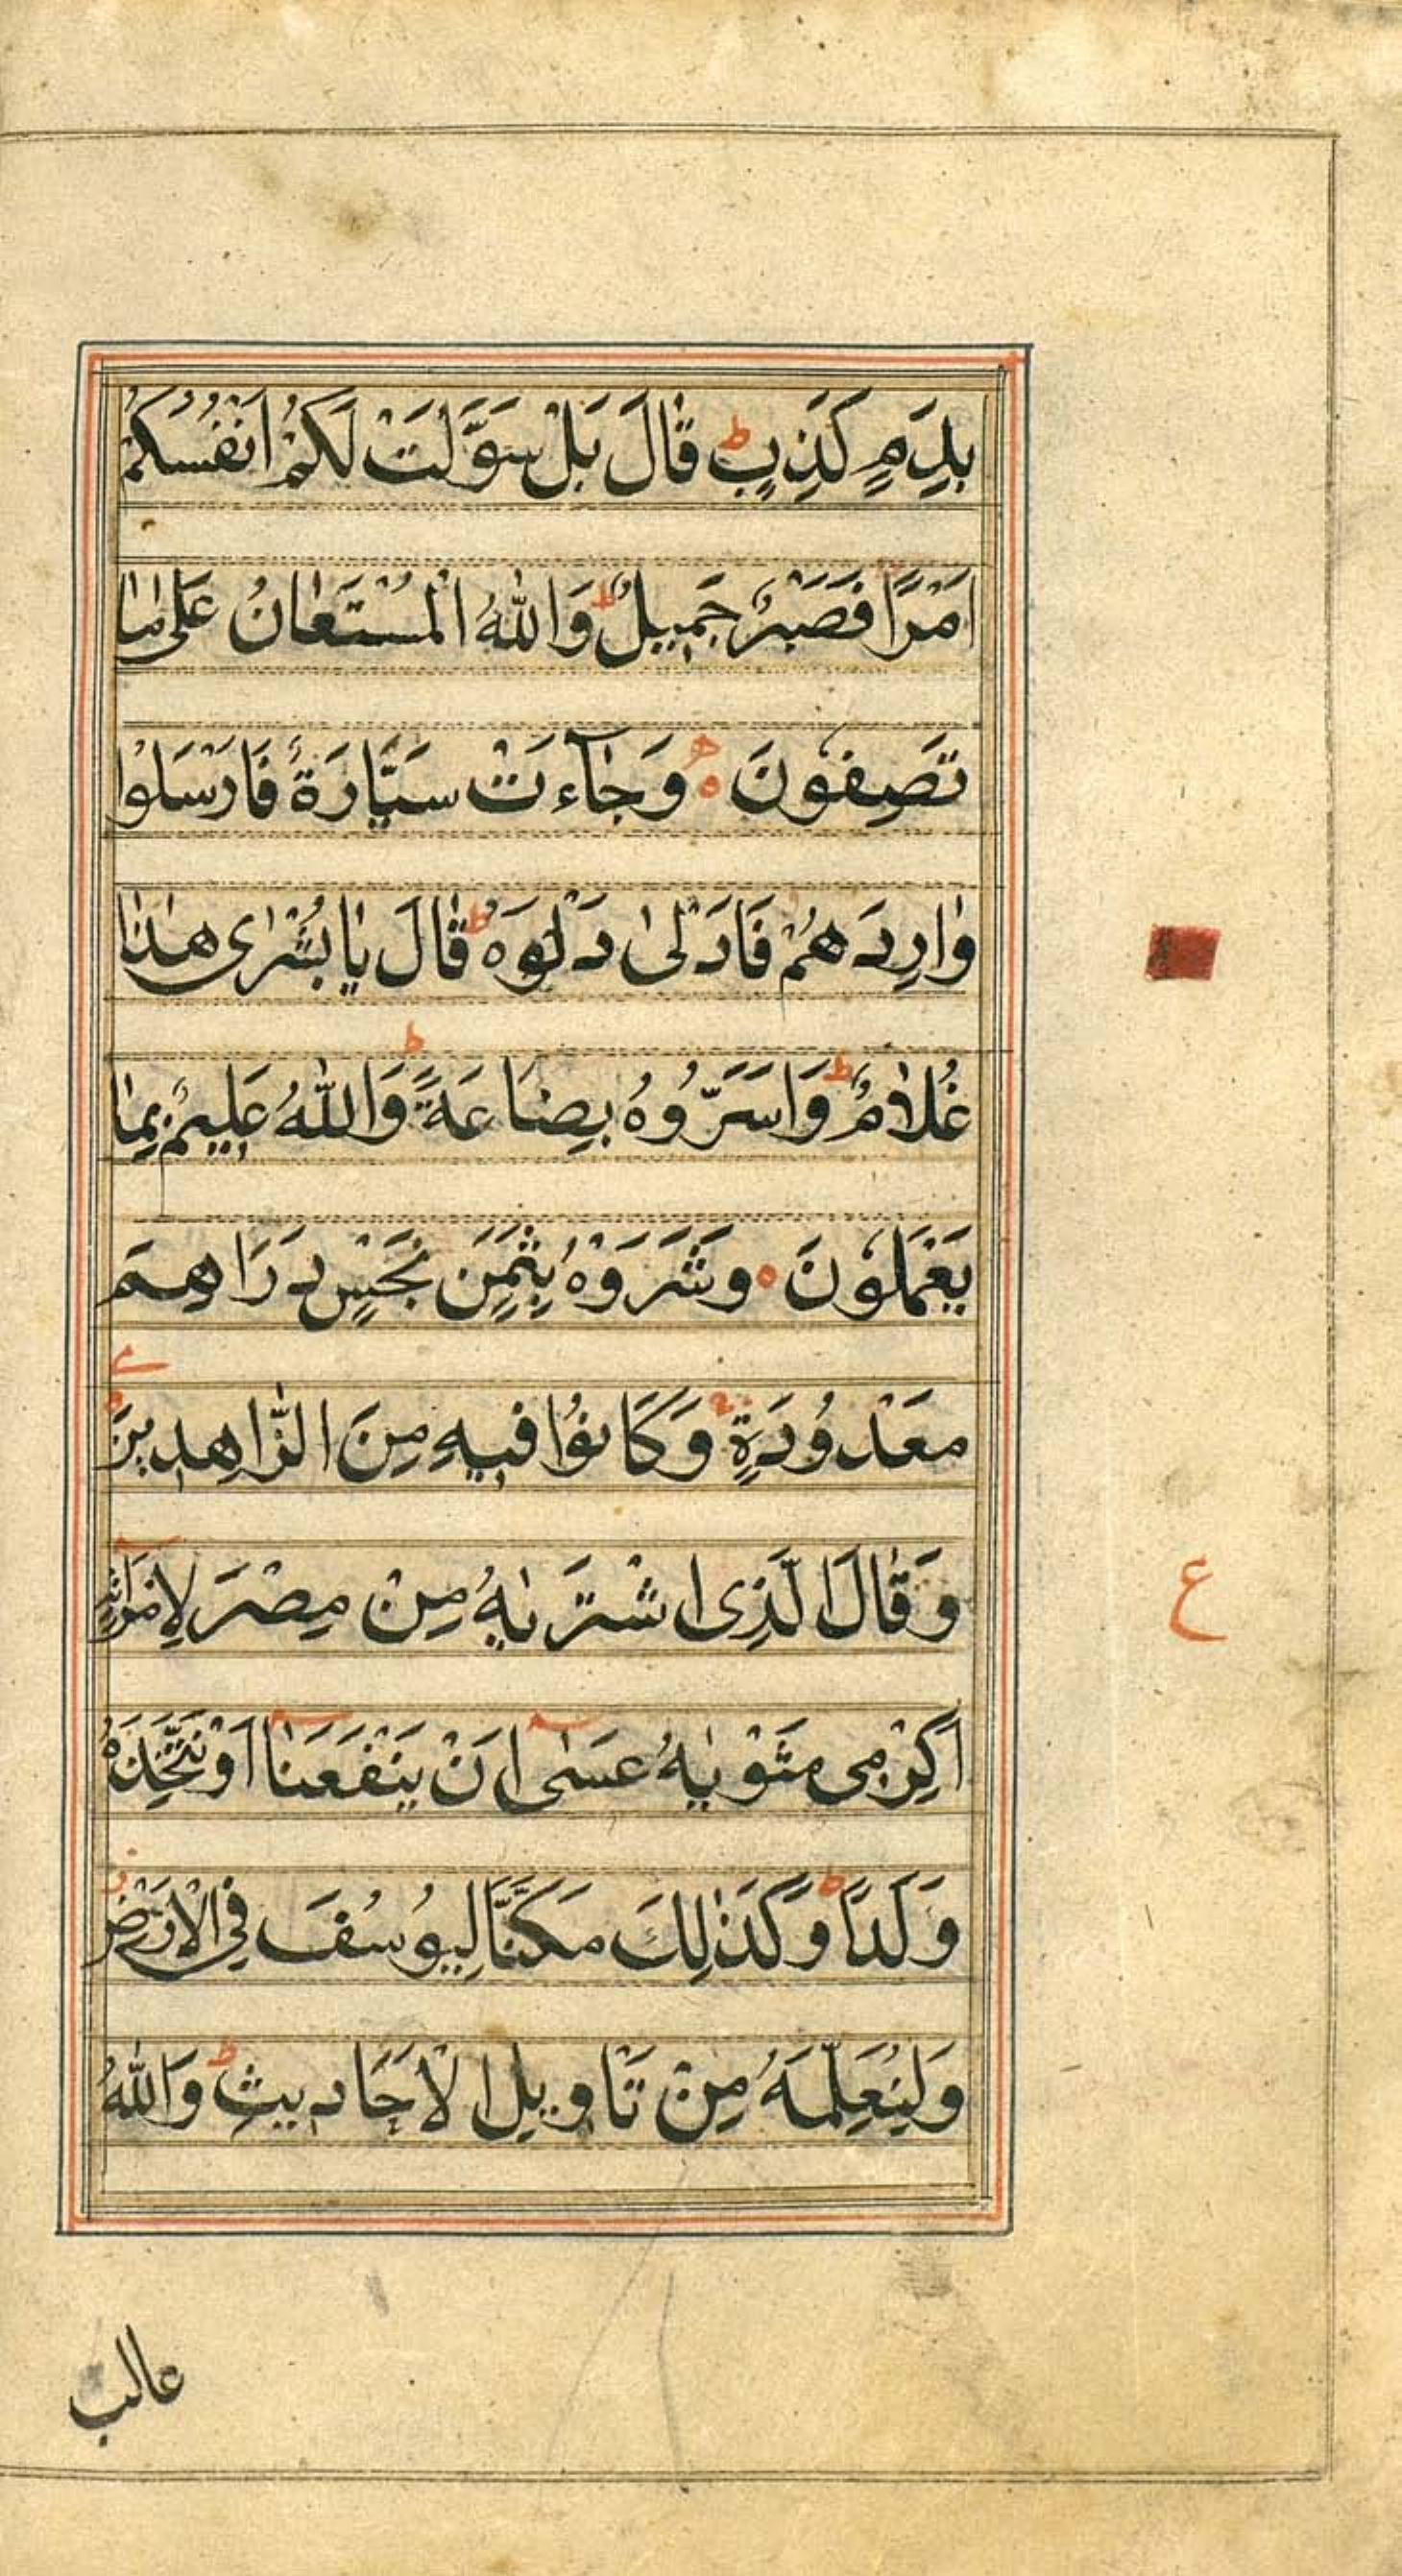 بِدَمٍ كَذِبٍ ط قَالَ بَلْ سَوَّلَتْ لَكُمْ اَنْفُسُكُمْ
اَمْرًا فَصَبْرٌ جَمِيلٌ ط وَاللّٰهُ الْمُسْتَعَانُ عَلٰى مَا
تَصِفُونَ ه وَجَآءَتْ سَيَّارَةٌ فَاَرْسَلُوا
وَارِدَهُمْ فَاَدْلٰى دَلْوَهُ ط قَالَ يَا بُشْرٰى هٰذَا
غُلَامٌ ط وَاَسَرُّوهُ بِضَاعَةً ط وَاللّٰهُ عَلِيمٌ بِمَا
يَعْمَلُونَ ه وَشَرَوْهُ بِثَمَنٍ بَخْسٍ دَرَاهِمَ
مَعْدُودَةٍ وَكَانُوا فِيهِ مِنَ الزَّاهِدِينَ
وَقَالَ الَّذِى اشْتَرٰيهُ مِنْ مِصْرَ لِامْرَاَتِهِ
اَكْرِمِى مَثْوٰيهُ عَسٰى اَنْ يَنْفَعَنَا اَوْ نَتَّخِذَهُ
وَلَدًا ط وَكَذٰلِكَ مَكَّنَّا لِيُوسُفَ فِى الْاَرْضِ
وَلِيُعَلِّمَهُ مِنْ تَاْوِيلِ الْاَحَادِيثِ ط وَاللّٰهُ
غالب
ع